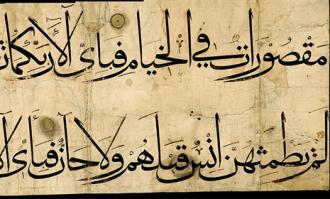 مقصورات في الخيام فبأي آلاء ربكما
لم يطمثهن انس قبلهم ولا جان فبأي آلا